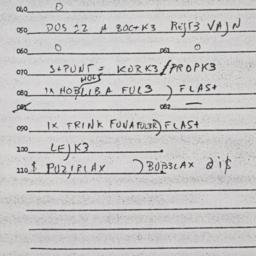 040 O
050 DOS 22 A BOC+K3 REJT3 VAJN
060 O 061 O
070 S+PUNT = KORK3/PROPK3
HOLS
080 1X HOBLIBA FUL3 ) FLAS+
081 082 —
090 1X TRINK FUNAFUL3R) FLAS+
100 LEJK3
110 $ PUZIPLAX ) BOB3LAX 2i$